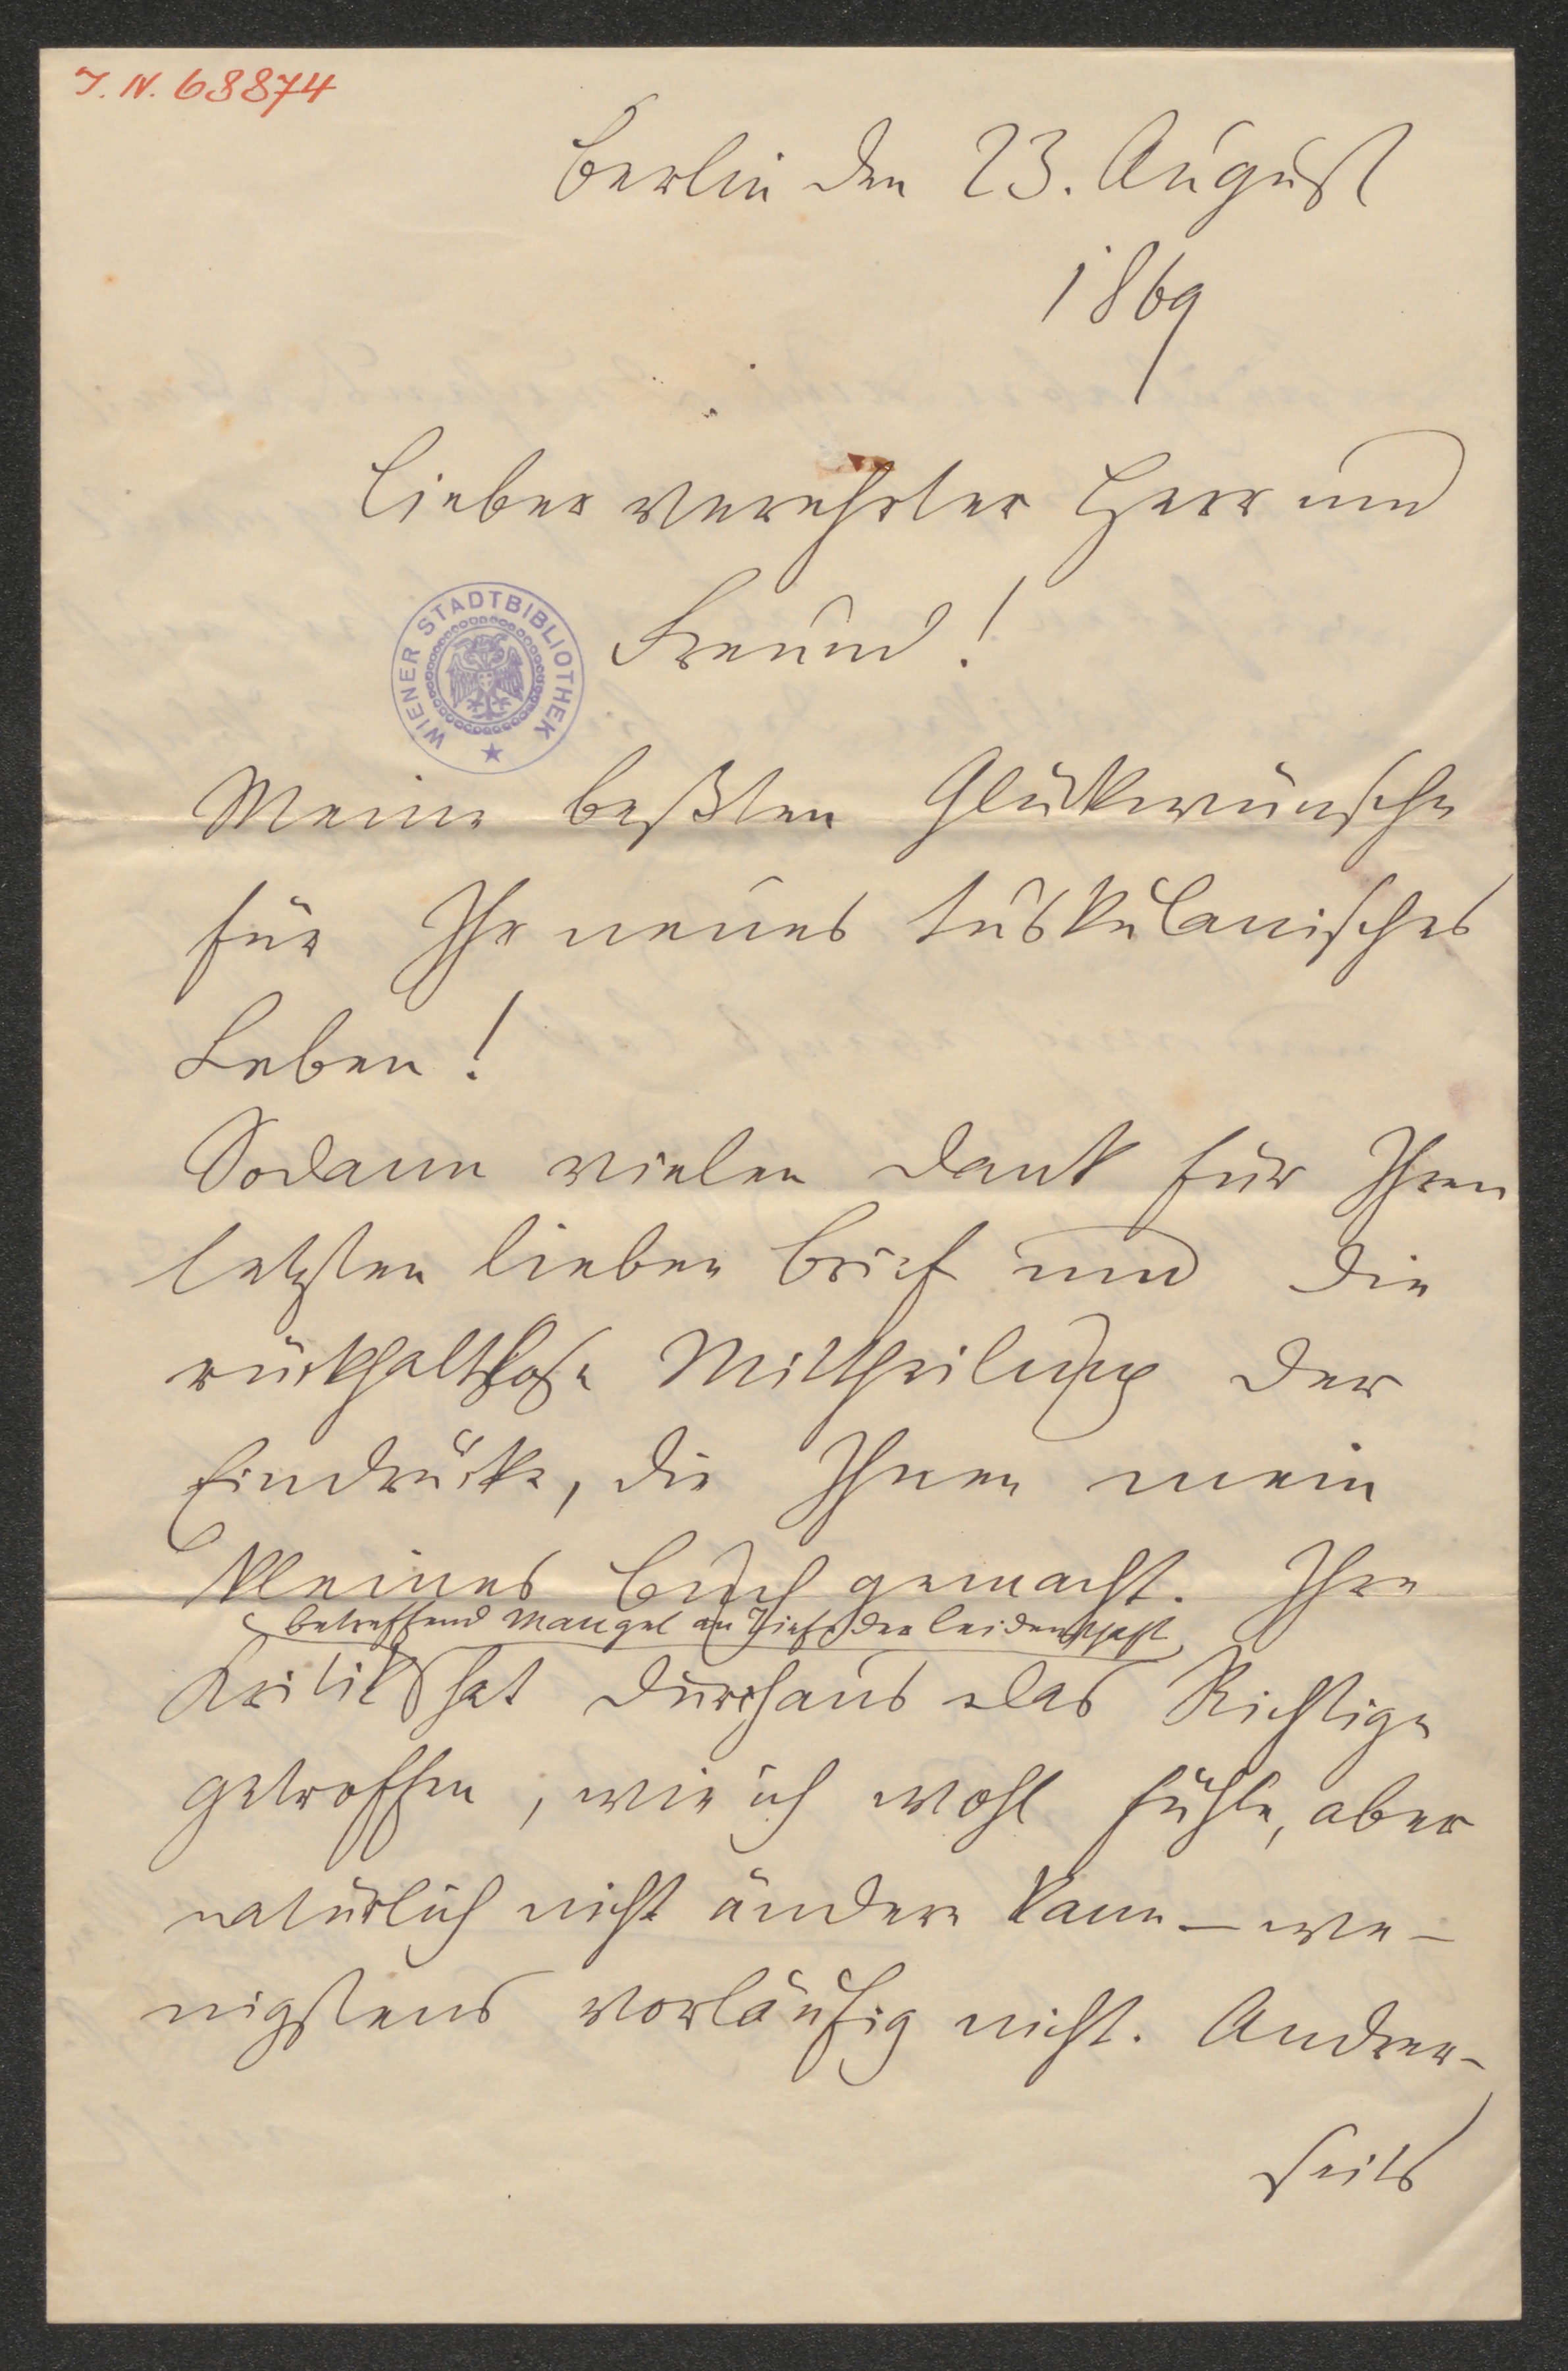 J. N. 68874
Berlin den 23. August
1869
Lieber verehrter Herr und
Freund!
WIENER STADTBIBLIOTHEK
Meine beßten Glückwünsche
für Ihr neues tuskulanisches
Leben!
Sodann vielen Dank für Ihren
letzten lieben Brief und die
rückhaltslose Mittheilung der
Eindrücke, die Ihnen mein
kleines Buch gemacht. Ihre
betreffend Mangel an Tiefe der Leidenschaft
Kritik hat durchaus das Richtige
getroffen, wie ich wohl fühle, aber
natürlich nicht ändern kann – we-
nigstens vorläufig nicht. Andrer-
seits